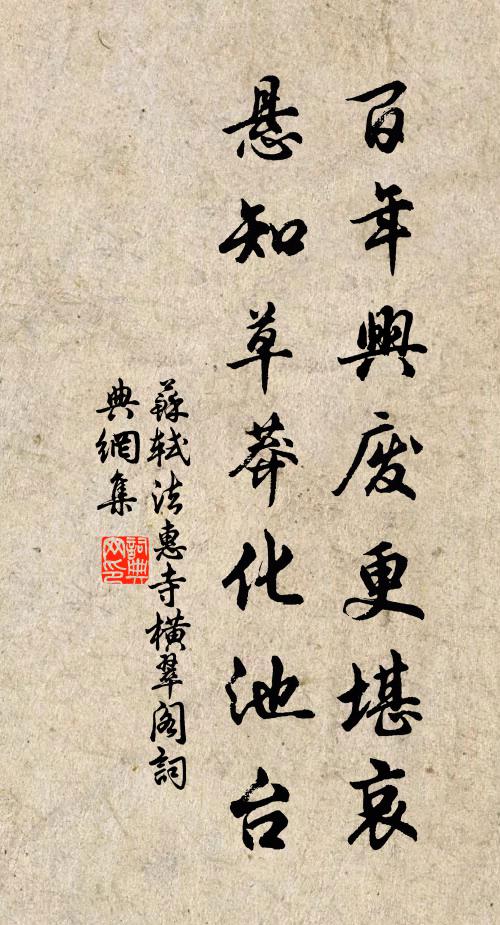 百年興废更堪哀
悬知草莽化池台
蘇軾法惠寺橫翠阁詞
典網集
詞典
网印